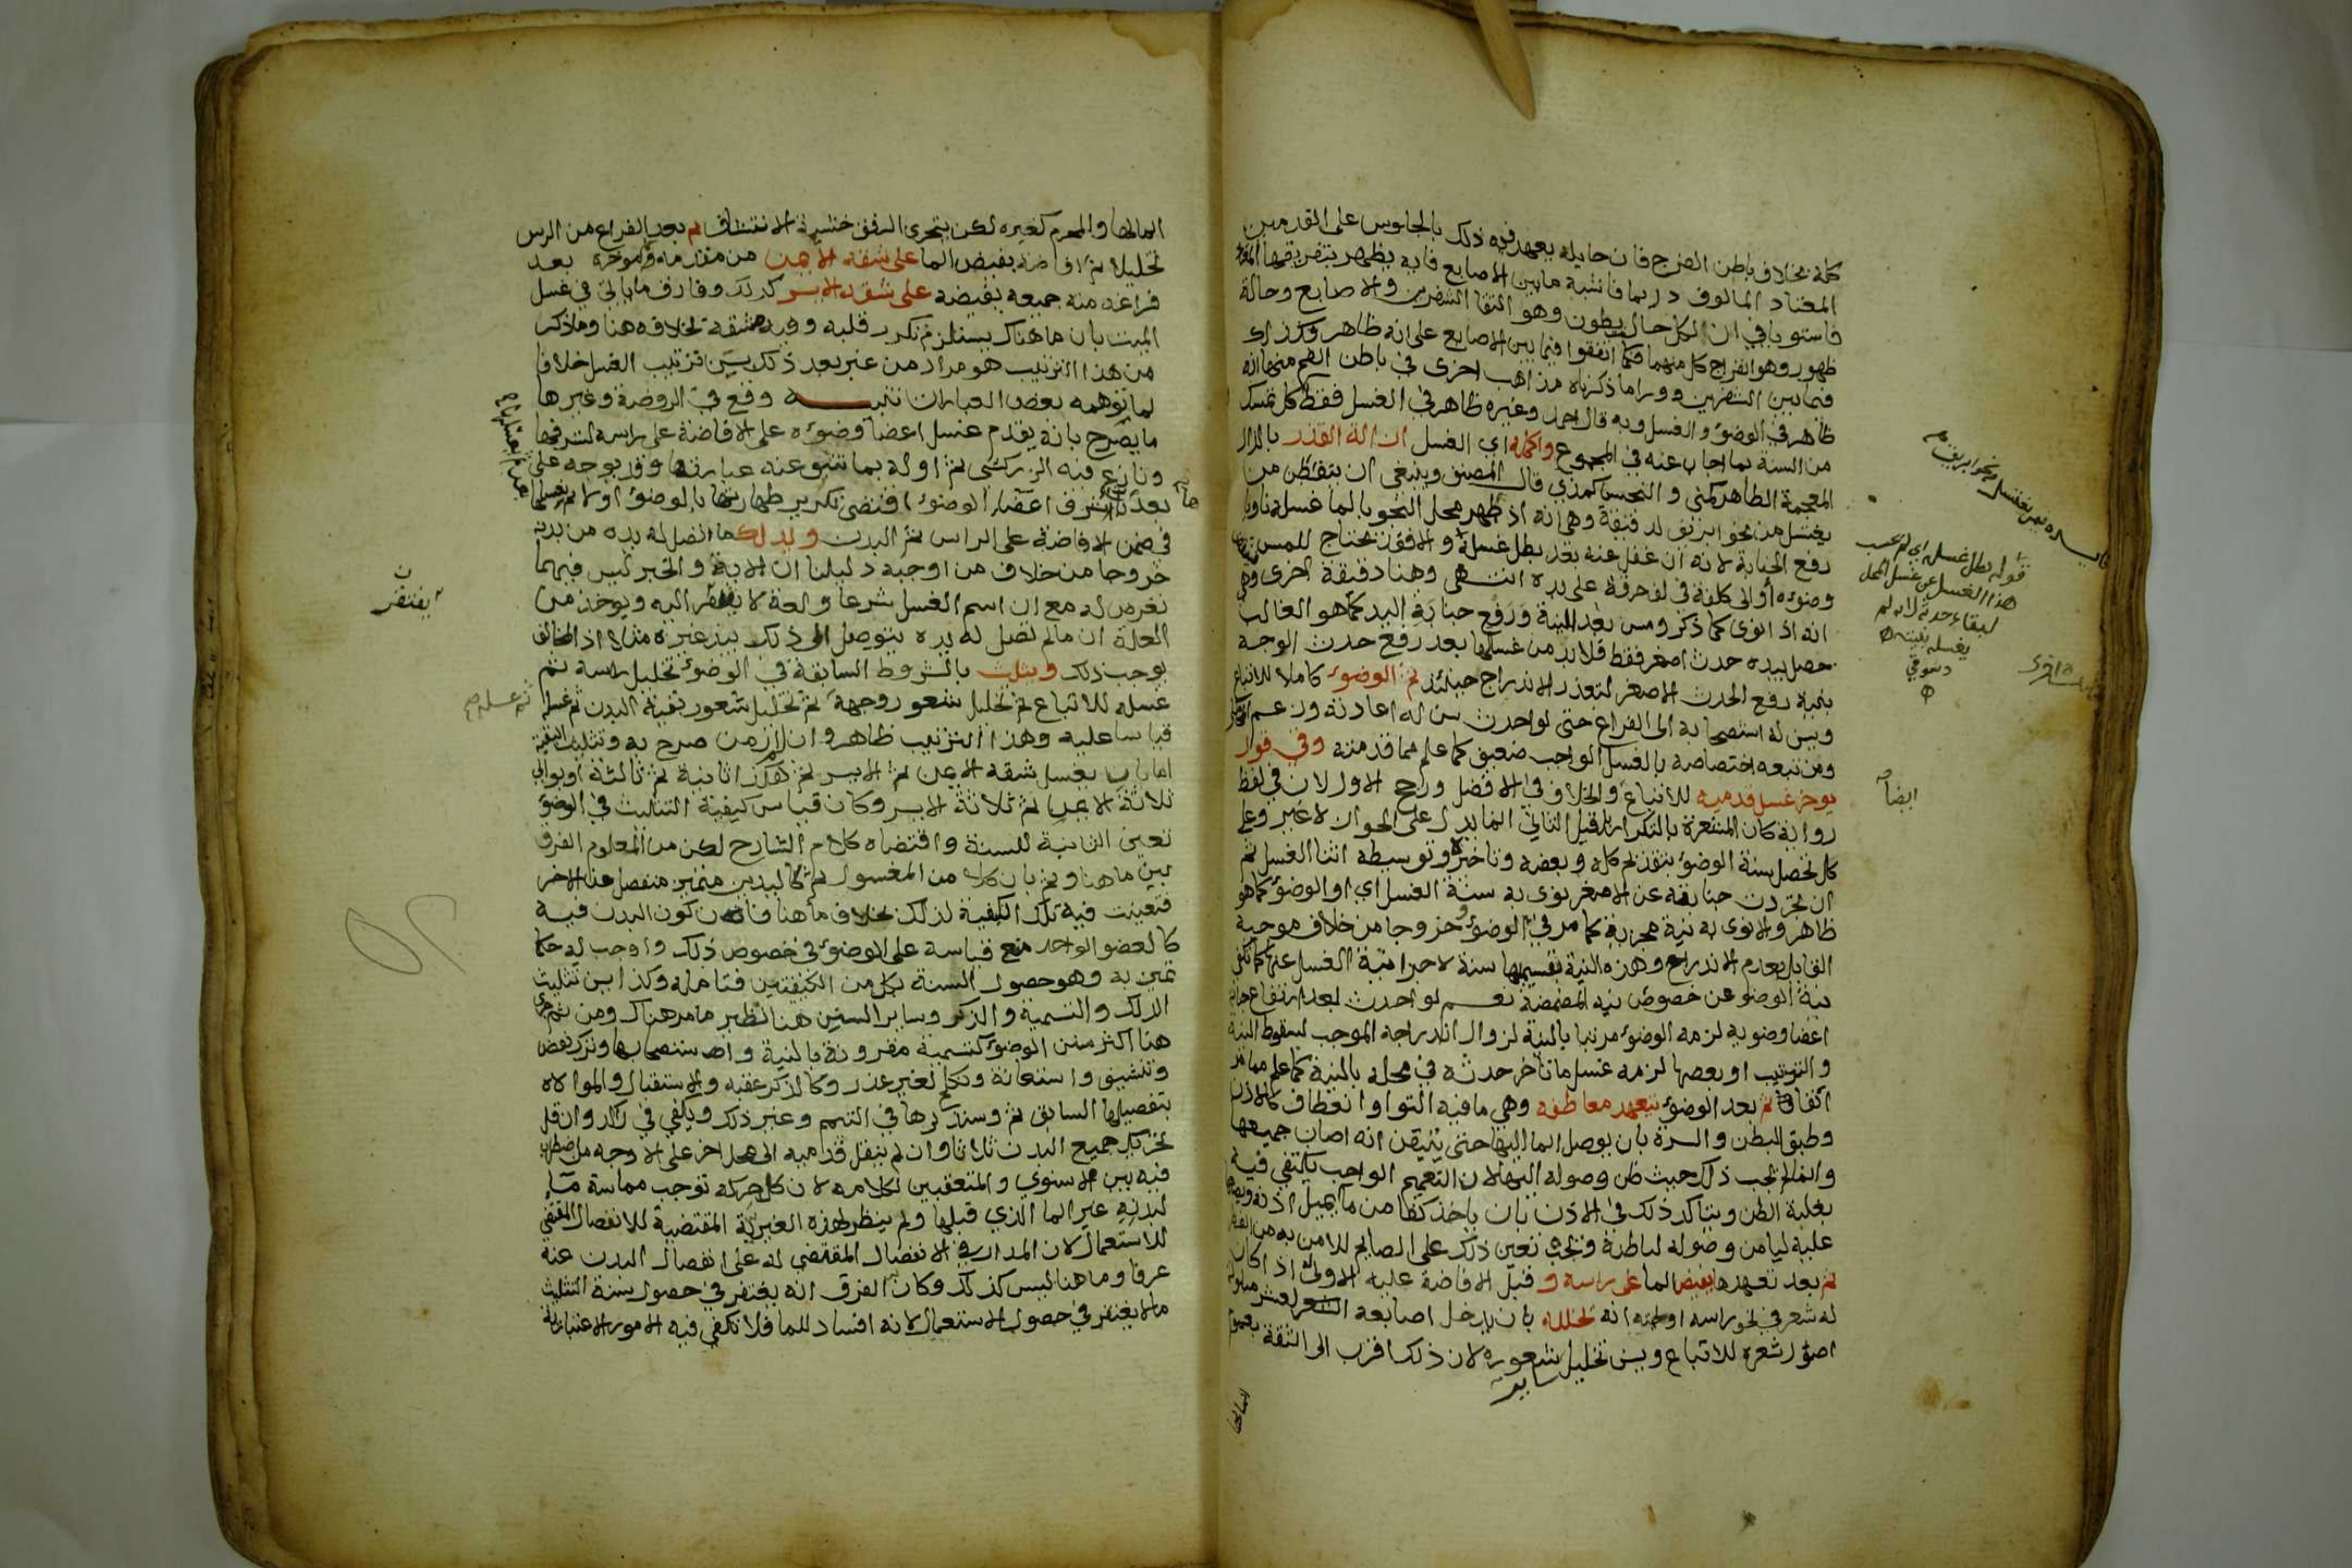 كله بخلاف باطن الفرج فان حايله يعهد فيه ذلك بالجلوس على القدمين
المعتاد المالوف دايما فاشبه ما بين الاصابع فانه يظهر بتفريقها المعتاد
فاستويا في ان لكل حال بطون وهو التقا الشفرين والاصابع وحالة
ظهور وهو انفراج كل منهما فكما اتفقوا فيما بين الاصابع على انه ظاهر فكذا
فيما بين الشفرين وورا ما ذكرناه مذاهب اخرى في باطن الفم منها انه
ظاهر في الوضوء والغسل وبه قال احمد وغيره ظاهر في الغسل فقط كل تمسك
من السنة بما اجاب عنه في المجموع واكمله اي الغسل ازالة القذر بالذال
المعجمة الطاهر كمني والنجس كمذي قال المصنف وينبغي ان يتفطن من
يغتسل من نحو ابريق لدقيقة وهي انه اذا طهر محل النجو بالما غسله ناويا
رفع الجنابة لانه ان غفل عنه بعد بطل غسله والا فقد يحتاج للمس فينتقض
وضوءه او الى كلفة في لف خرقة على يده انتهى وهنا دقيقة اخرى وهي
انه اذا نوى كما ذكر ومس بعد النية ورفع جنابة اليد كما هو الغالب
حصل بيده حدث اصغر فقط فلا بد من غسلها بعد رفع حدث الوجه
بنية رفع الحدث الاصغر لتعذر الاندراج حينئذ ثم الوضوء كاملا للاتباع
ويسن له استصحابه الى الفراغ حتى لو احدث سن له اعادته وزعم المحاملي
ومن تبعه اختصاصه بالغسل الواجب ضعيف كما علم مما قدمته وفي قول
يوخر غسل قدميه للاتباع والخلاف في الافضل ورجح الاول لان في لفظ
رواية كان المشعرة بالتكرار بل قيل الثاني انما يدل على الجواز لا غير وعلى
كل تحصل سنة الوضوء بتقديم كله وبعضه وتاخيره وتوسيطه اثنا الغسل ثم
ان تجردت جنابته عن الاصغر نوى به سنة الغسل اي او الوضوء كما هو
ظاهر والا نوى به نية مجزية كما مر في الوضوء خروجا من خلاف موجبه
القايل بعدم الاندراج وهذه النية بقسميها سنة لاجزا نية الغسل عنها كما تكفي
نية الوضو عن خصوص نية المضمضة نعم لو احدث بعد ارتفاع جنابة
اعضا وضوءه لزمه الوضوء مرتبا بالنية لزوال اندراجه الموجب لسقوط النية
والترتيب او بعضها لزمه غسل ما تاخر حدثه في محله بالنية كما علم مما مر
اتفاقا ثم بعد الوضوء تعهد معاطفه وهي ما فيه التوا وانعطاف كالاذن
وطبق البطن والسرة بان يوصل الما اليها حتى يتيقن انه اصاب جميعها
وانما لم يجب ذلك حيث ظن وصوله اليها لان التعميم الواجب يكتفي فيه
بغلبة الظن ويتاكد ذلك في الاذن بان ياخذ كفا من ما ثم يميل اذنه ويضعها
عليه ليامن وصوله لباطنه وبحث تعين ذلك على الصايم للامن به من الفطر
ثم بعد تعهدها يفيض الما على راسه و قبل الافاضة عليه الاولى اذا كان
له شعر في نحو راسه او لحيته انه يخلله بان يدخل اصابعه العشر مبلولة
اصول شعره للاتباع ويسن تخليل ساير شعوره لان ذلك اقرب الى الثقة بعموم
المالها
قوله بطل غسله اي لم يحسب
هذا الغسل عن غسل المحل
لبقاء حدثه لانه لم
يغسله بنيته
دسوقي
ايضا
المالها والمحرم كغيره لكن يتحرى الرفق خشية الانتتاف ثم بعد الفراغ من الراس
تخليلا ثم افاضة يفيض الما على شقه الايمن من مقدمه وموخره بعد
فراغه منه جميعه يفيضه على شقه الايسر كذلك وفارق ما ياتي في غسل
الميت بان ما هناك يستلزم تكرر قلبه وفيه مشقة بخلافه هنا وما ذكر
من هذا الترتيب هو مراد من عبر بعد ذلك بسن ترتيب الغسل خلافا
لما توهمه بعض العبارات تنبيه وقع في الروضة وغيرها
ما يصرح بانه يقدم غسل اعضا وضوئه على الافاضة على راسه لشرفها
ونازع فيه الزركشي ثم اوله بما تنبو عنه عبارتها وقد يوجه على
بعد بان شرف اعضاء الوضوء اقتضى تكرير طهارتها بالوضوء اولا ثم بغسلها
في ضمن الافاضة على الراس ثم البدن ويدلك ما تصل له يده من بدنه
خروجا من خلاف من اوجبه دليلنا ان الاية والخبر ليس فيهما
تعرض له مع ان اسم الغسل شرعا ولغة لا يفتقر اليه ويوخذ من
العلة ان ما لم تصل له يده يتوصل الى ذلك بيد غيره مثلا اذ المخالف
يوجب ذلك ويثلث بالشروط السابقة في الوضوء تخليل راسه ثم
غسله للاتباع ثم تخليل شعور وجهه ثم تخليل شعور بقية البدن ثم غسله
قياسا عليه وهذا الترتيب ظاهر وان لم ار من صرح به وتثليث البقية
اما بان يغسل شقه الايمن ثم الايسر ثم هكذا ثانية ثم ثالثة او يوالي
ثلاثة الايمن ثم ثلاثة الايسر وكان قياس كيفية التثليث في الوضوء
تعين الثانية للسنة واقتضاه كلام الشارح لكن من المعلوم الفرق
بين ما هنا وثم بان كلا من المغسول ثم كاليدين متميز منفصل عن الاخر
فتعينت فيه تلك الكيفية لذلك بخلاف ما هنا فان كون البدن فيه
كالعضو الواحد منع قياسه على الوضوء في خصوص ذلك واوجب له حكما
تميز به وهو حصول السنة بكل من الكيفيتين فتامله وكذا يسن تثليث
الدلك والتسمية والذكر وساير السنن هنا نظير ما مر هناك ومن ثم جرى
هنا اكثر سنن الوضوء كتسمية مقرونة بالنية واستصحابها وترك نفض
وتنشيف واستعانة وتكلم لغير عذر وكالذكر عقبه والاستقبال والموالاه
بتفصيلها السابق ثم وسنذكرها في التيمم وغير ذلك ويكفي في راكد وان قل
تحريك جميع البدن ثلاثا وان لم ينقل قدميه الى محل اخر على الاوجه من اضطراب
فيه بين الاسنوي والمتعقبين لكلامه لان كل حركة توجب مماسة ما
لبدنه غير الما الذي قبلها ولم ينظر لهذه الغيرية المقتضية للانفصال المقتضي
للاستعمال لان المدار في الانفصال المقتضي له على انفصال البدن عنه
عرفا وما هنا ليس كذلك وكان الفرق انه يغتفر في حصول سنة التثليث
ما لا يغتفر في حصول الاستعمال لانه افساد للما فلا تكفي فيه الامور الاعتبارية
يفتقر